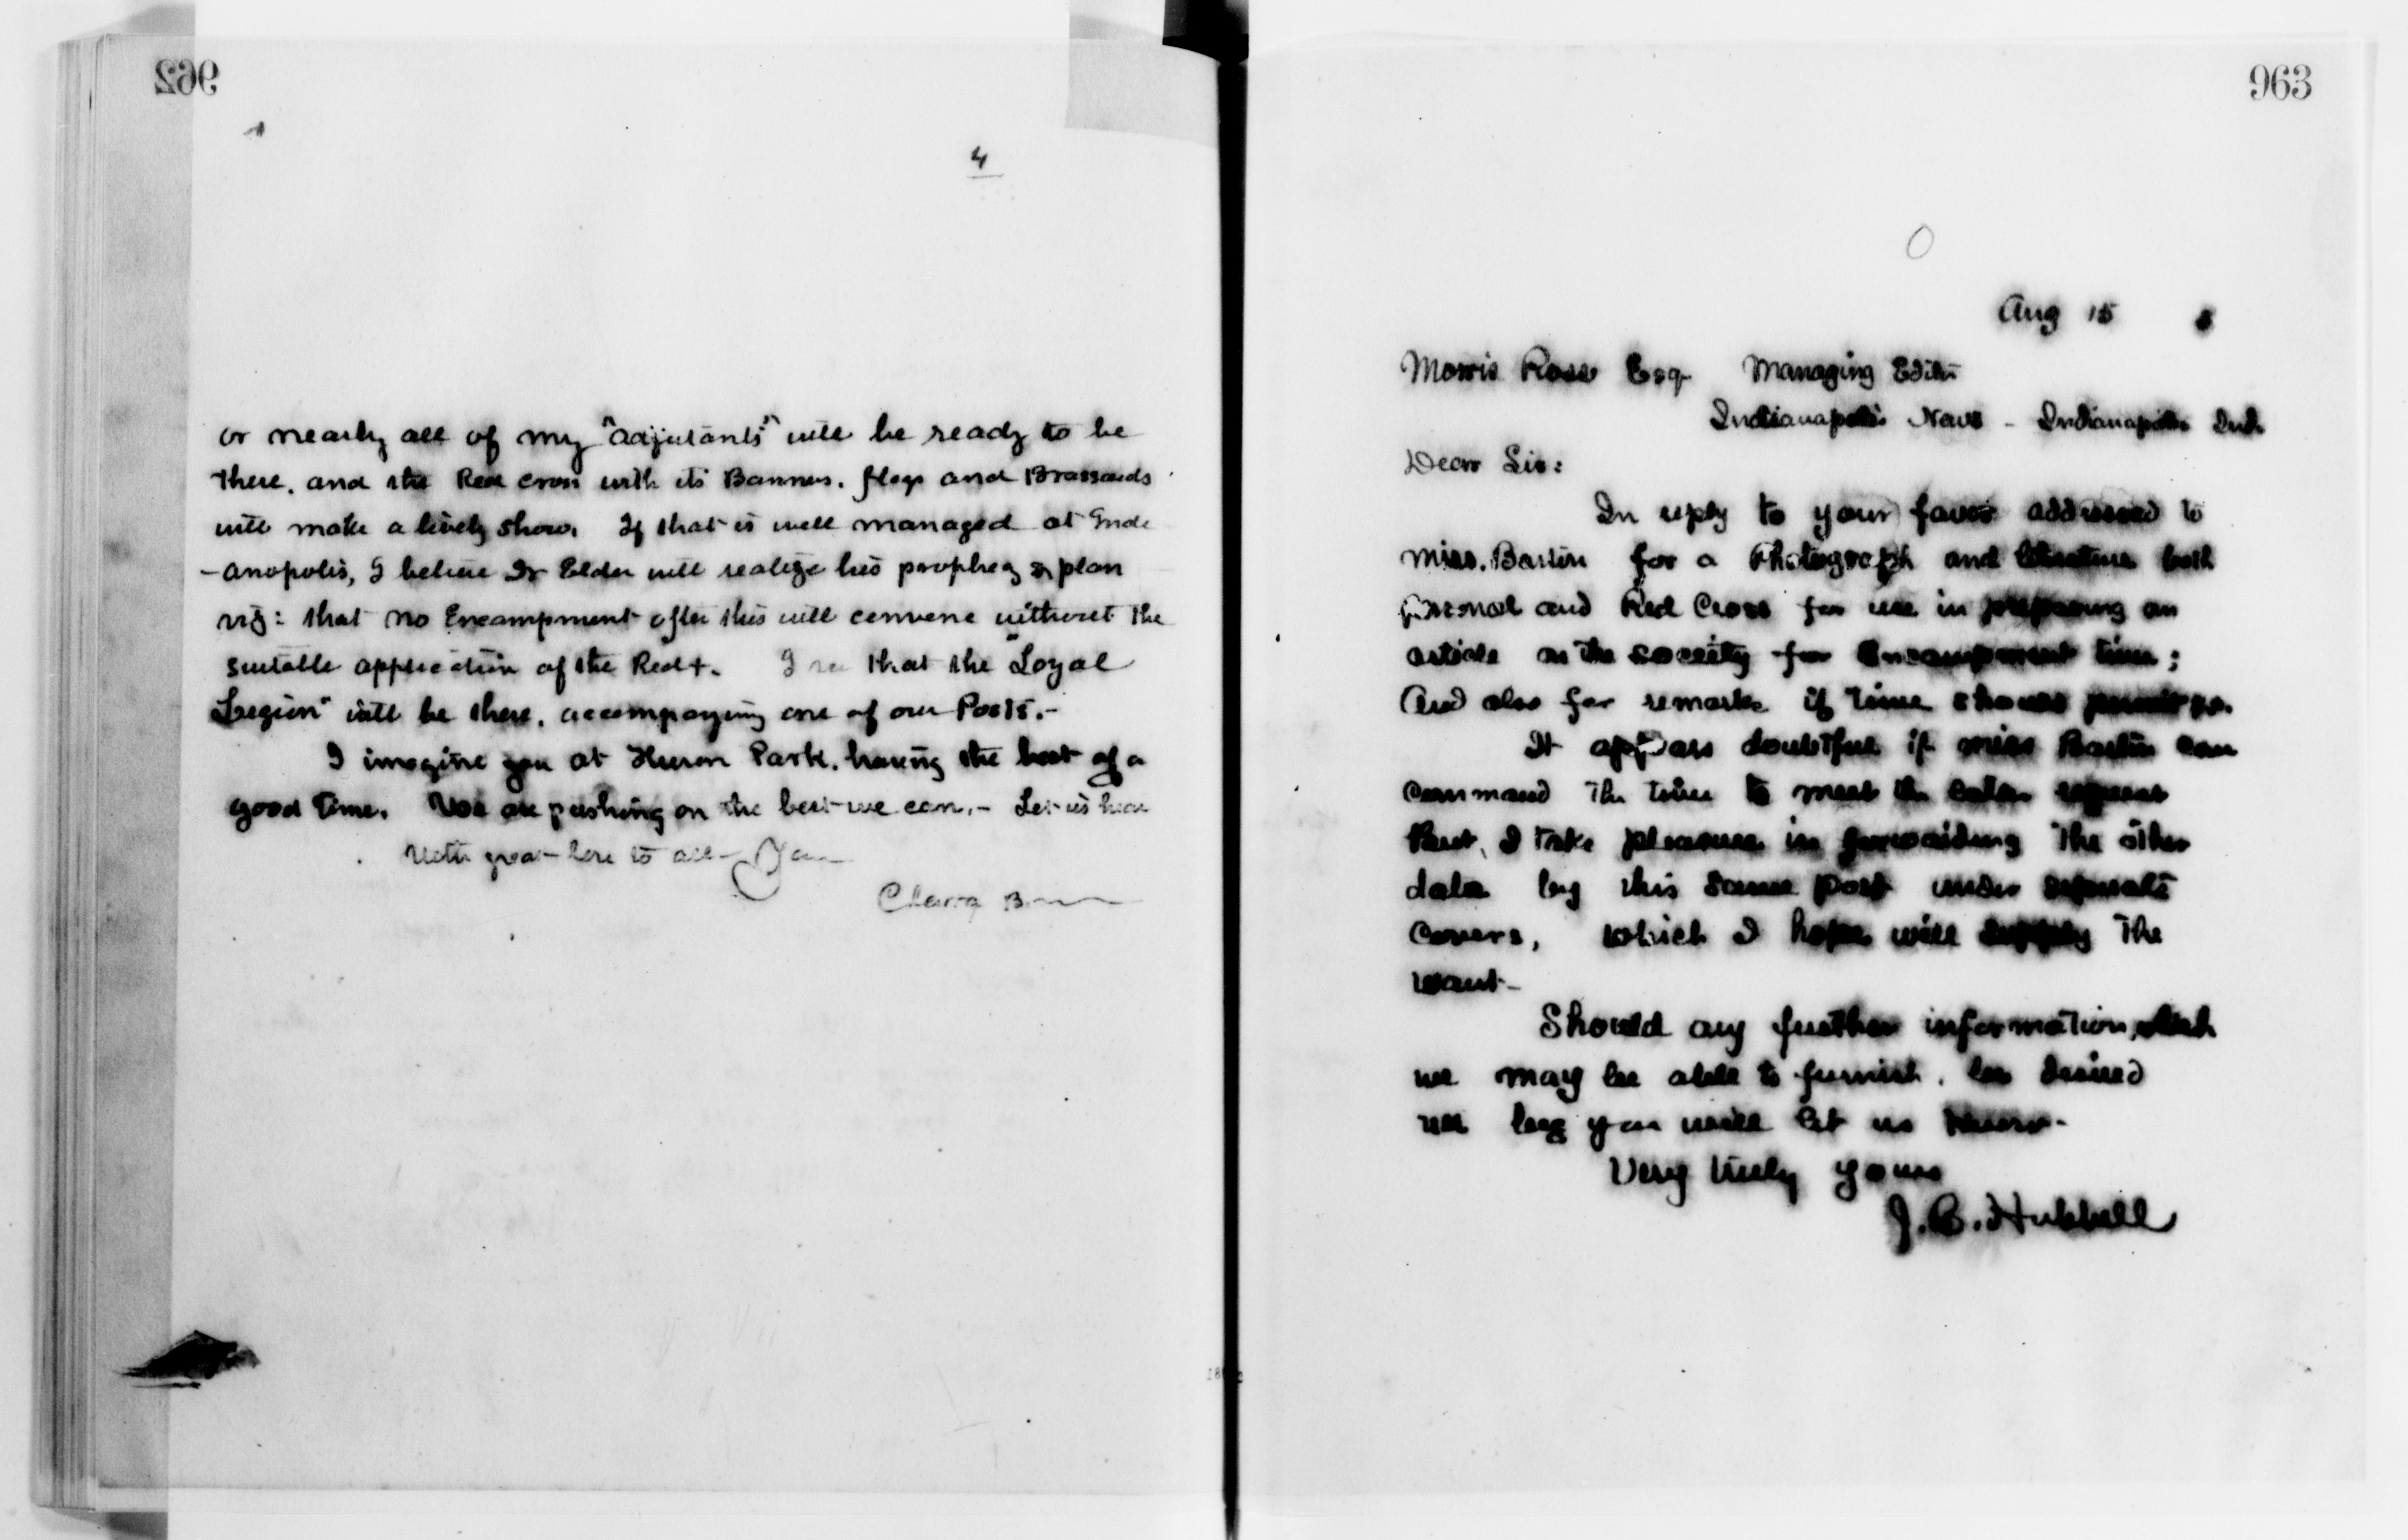 962
4
or nearly all of my "adjutants" will be ready to be
there, and the Red Cross with its Banners, flags and Brassards
will make a lively show. If that is well managed at Inde
-anopolis, I believe Dr Elder will realize his prophecy & plan
viz: that no Encampment after this will convene without the
suitable application of the Red +. I see that the "Loyal
Legion" will be there, accompanying one of our Posts.-
I imagine you at Huron Park, having the best of a
good time. We are pushing on the best we can.- Let us hear
With great love to all - Your
Clara B
963
Aug 15 8
Morris Ross Esq Managing Editor
Indianapolis News - Indianapolis Ind.
Dear Sir:
In reply to your favor addressed to
Miss. Barton for a Photograph and literature both
personal and Red Cross for use in preparing an
article on the society for Encampment time;
And also for remarks if time should permit
It appears doubtful if Miss Barton can
command the time to meet the request
But, I take pleasure in forwarding the other
data by this same post under separate
covers, which I hope will supply the
want-
Should any further information which
we may be able to furnish, be desired
we beg you will let us know-
Very truly yours
J. B. Hubbell